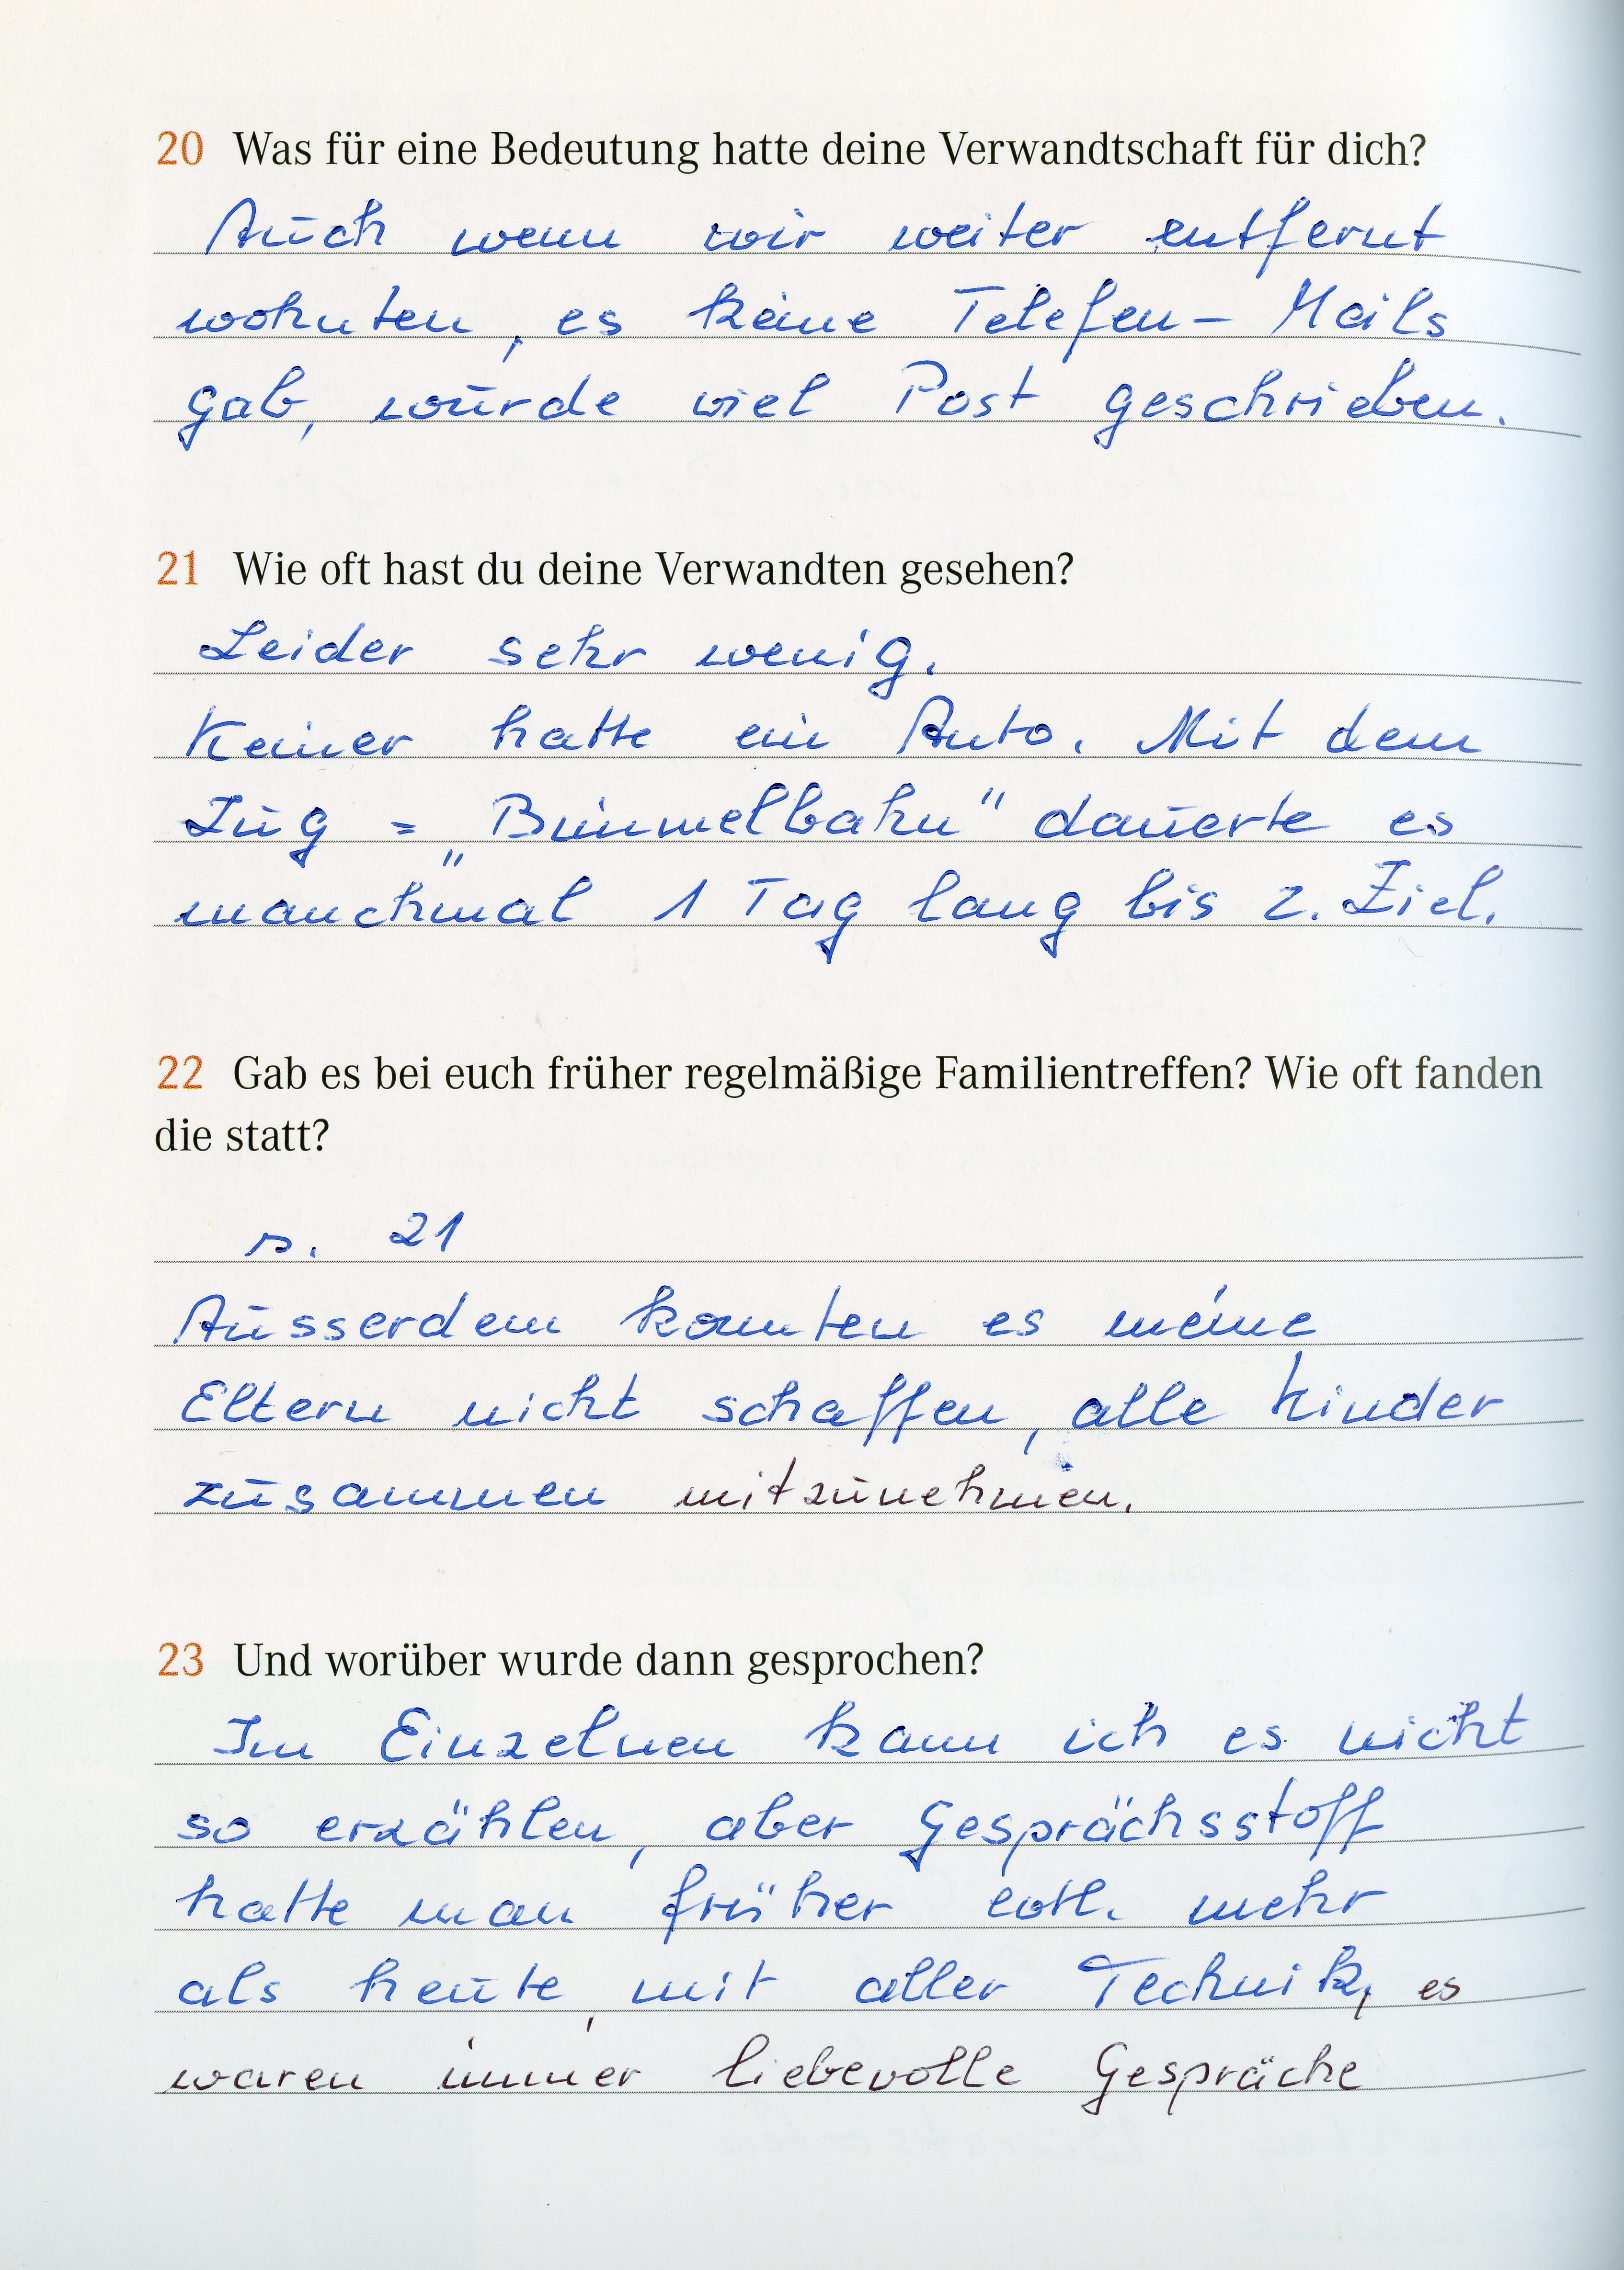 20 Was für eine Bedeutung hatte deine Verwandtschaft für dich?
Auch wenn wir weiter entfernt
wohnten, es keine Telefon- Mails
gab, wurde viel Post geschrieben.
21 Wie oft hast du deine Verwandten gesehen?
Leider sehr wenig.
Keiner hatte ein Auto. Mit dem
Zug = „Bummelbahn" dauerte es
manchmal 1 Tag lang bis z. Ziel.
22 Gab es bei euch früher regelmäßige Familientreffen? Wie oft fanden
die statt?
s. 21
Ausserdem konnten es meine
Eltern nicht schaffen, alle Kinder
zusammen mitzunehmen.
23 Und worüber wurde dann gesprochen?
Im Einzelnen kann ich es nicht
so erzählen, aber Gesprächsstoff
hatte man früher evtl. mehr
als heute, mit aller Technik, es
waren immer liebevolle Gespräche